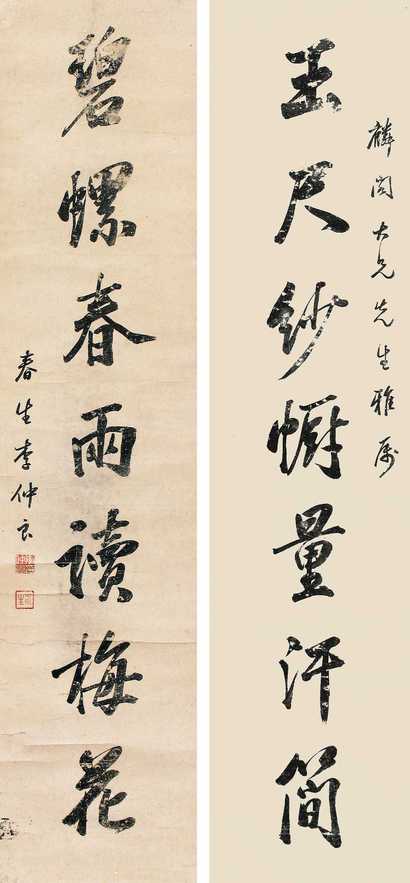 麟閣大兄先生雅屬
玉尺紗幮量汗簡
碧螺春雨讀梅花
春生李仲良